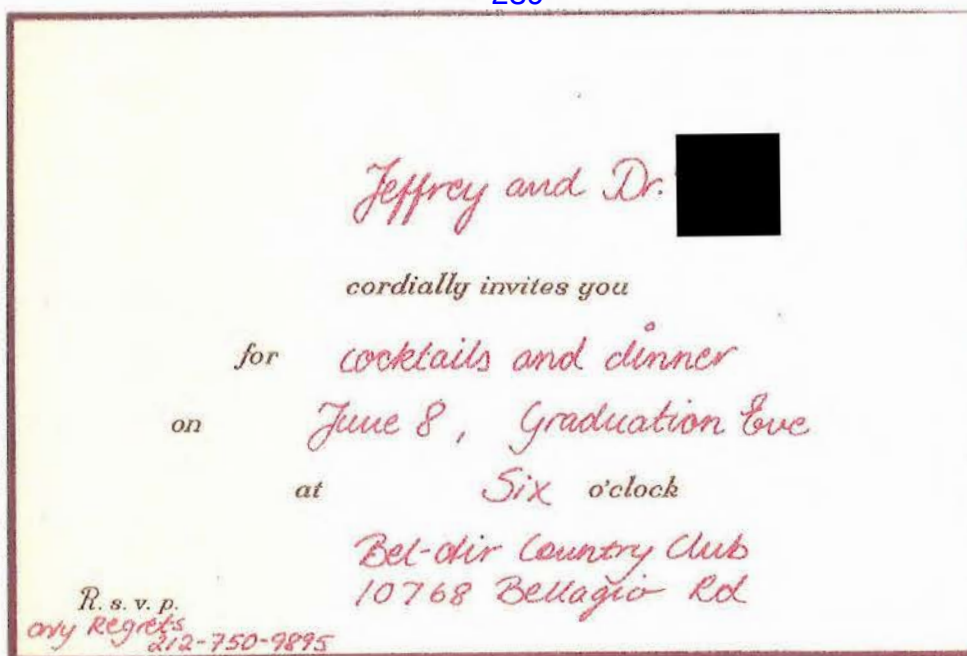 Jeffrey and Dr.
cordially invites you
for cocktails and dinner
on June 8, Graduation Eve
at Six o'clock
Bel-Air Country Club
10768 Bellagio Rd
R. s. v. p.
only Regrets
212-750-9895